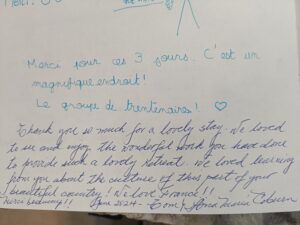 Merci pour ces 3 jours. C'est un
magnifique endroit!
Le groupe de trentenaires! ♡
Thank you so much for a lovely stay. We loved
to see and enjoy the wonderful work you have done
to provide such a lovely retreat. We loved learning
from you about the culture of this part of your
beautiful country! We love France!!
Merci 2024 - Tom &